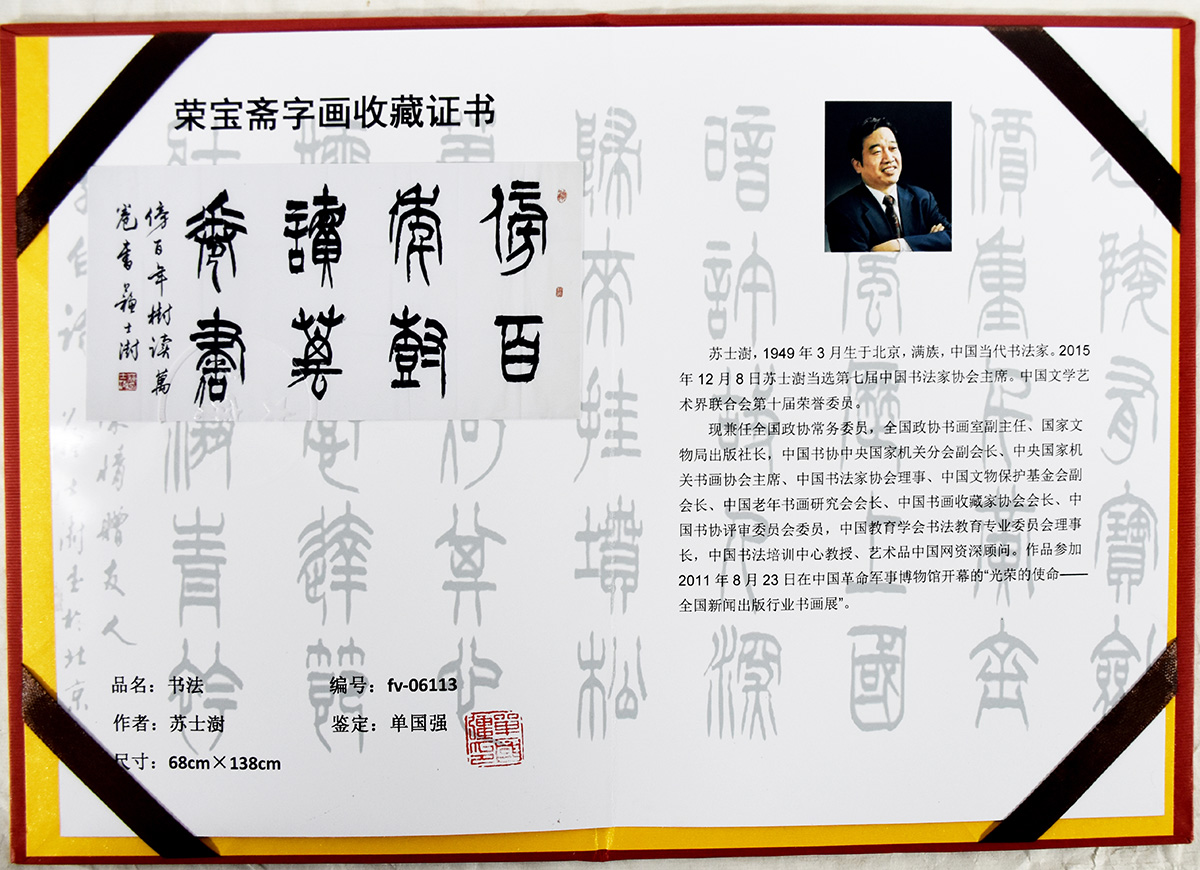 荣宝斋字画收藏证书
傍百
年树
读万
卷书
傍百年树读萬
卷书苏士澍
品名：书法
编号：fv-06113
作者：苏士澍
鉴定：单国强
尺寸：68cm×138cm
苏士澍，1949 年 3 月生于北京，满族，中国当代书法家。2015
年 12 月 8 日苏士澍当选第七届中国书法家协会主席。中国文学艺
术界联合会第十届荣誉委员。
现兼任全国政协常务委员，全国政协书画室副主任、国家文
物局出版社长，中国书协中央国家机关分会副会长、中央国家机
关书画协会主席、中国书法家协会理事、中国文物保护基金会副
会长、中国老年书画研究会会长、中国书画收藏家协会会长、中
国书协评审委员会委员，中国教育学会书法教育专业委员会理事
长，中国书法培训中心教授、艺术品中国网资深顾问。作品参加
2011 年 8 月 23 日在中国革命军事博物馆开幕的“光荣的使命——
全国新闻出版行业书画展”。